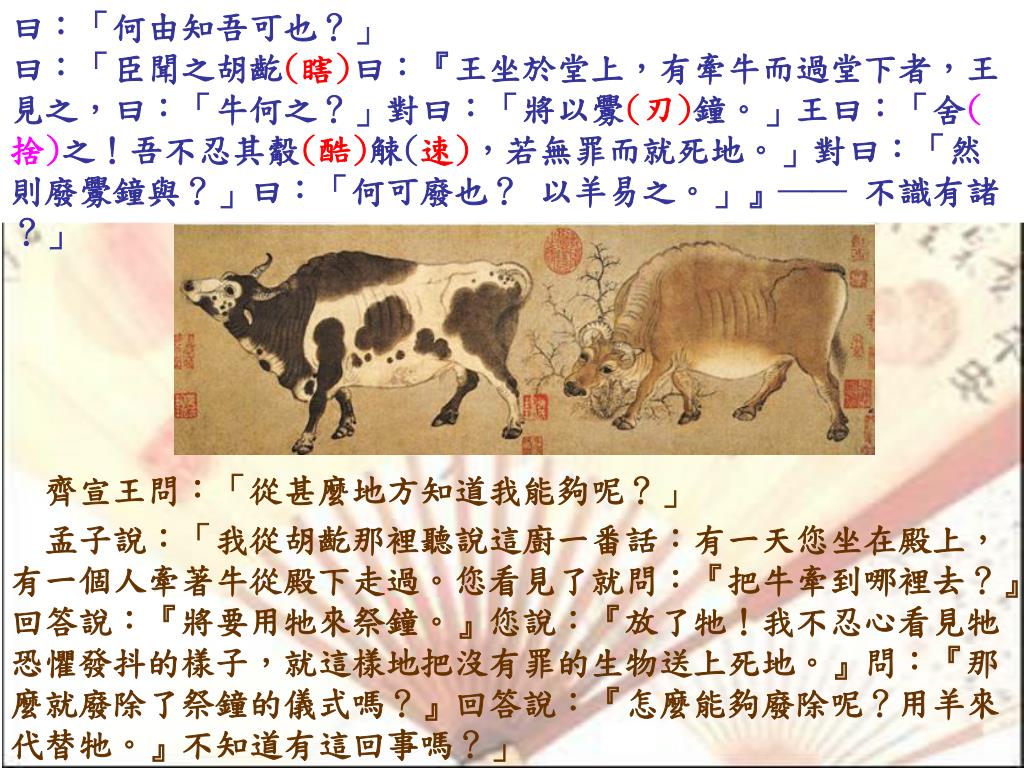 曰：「何由知吾可也？」
曰：「臣聞之胡齕(瞎)曰：『王坐於堂上，有牽牛而過堂下者，王
見之，曰：「牛何之？」對曰：「將以釁(刃)鐘。」王曰：「舍(
捨)之！吾不忍其觳(酷)觫(速)，若無罪而就死地。」對曰：「然
則廢釁鐘與？」曰：「何可廢也？ 以羊易之。」』—— 不識有諸
？」
齊宣王問：「從甚麼地方知道我能夠呢？」
孟子說：「我從胡齕那裡聽說這廚一番話：有一天您坐在殿上，
有一個人牽著牛從殿下走過。您看見了就問：『把牛牽到哪裡去？』
回答說：『將要用牠來祭鐘。』您說：『放了牠！我不忍心看見牠
恐懼發抖的樣子，就這樣地把沒有罪的生物送上死地。』問：『那
麼就廢除了祭鐘的儀式嗎？』回答說：『怎麼能夠廢除呢？用羊來
代替牠。』不知道有這回事嗎？」